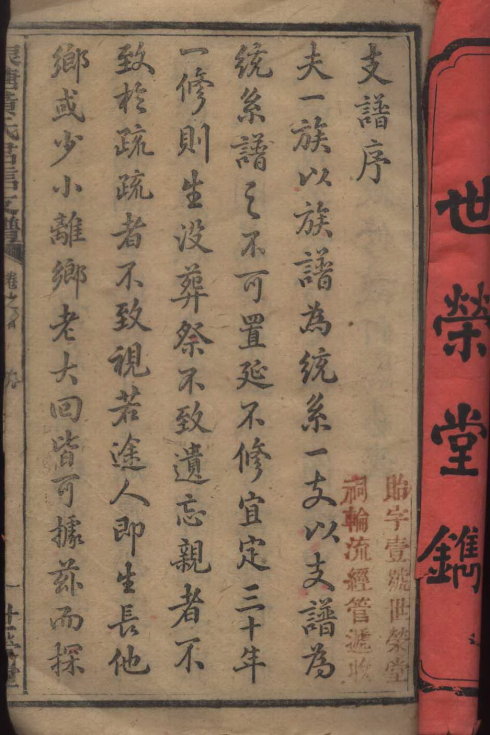 世榮堂鐫
貽字壹號世榮堂
祠輪流經管遞收
支譜序
夫一族以族譜為統系一支以支譜為
統系譜之不可置延不修宜定三十年
一修則生没葬祭不致遺忘親者不
致於疏疏者不致視若途人即生長他
鄉或少小離鄉老大回皆可據茲而探